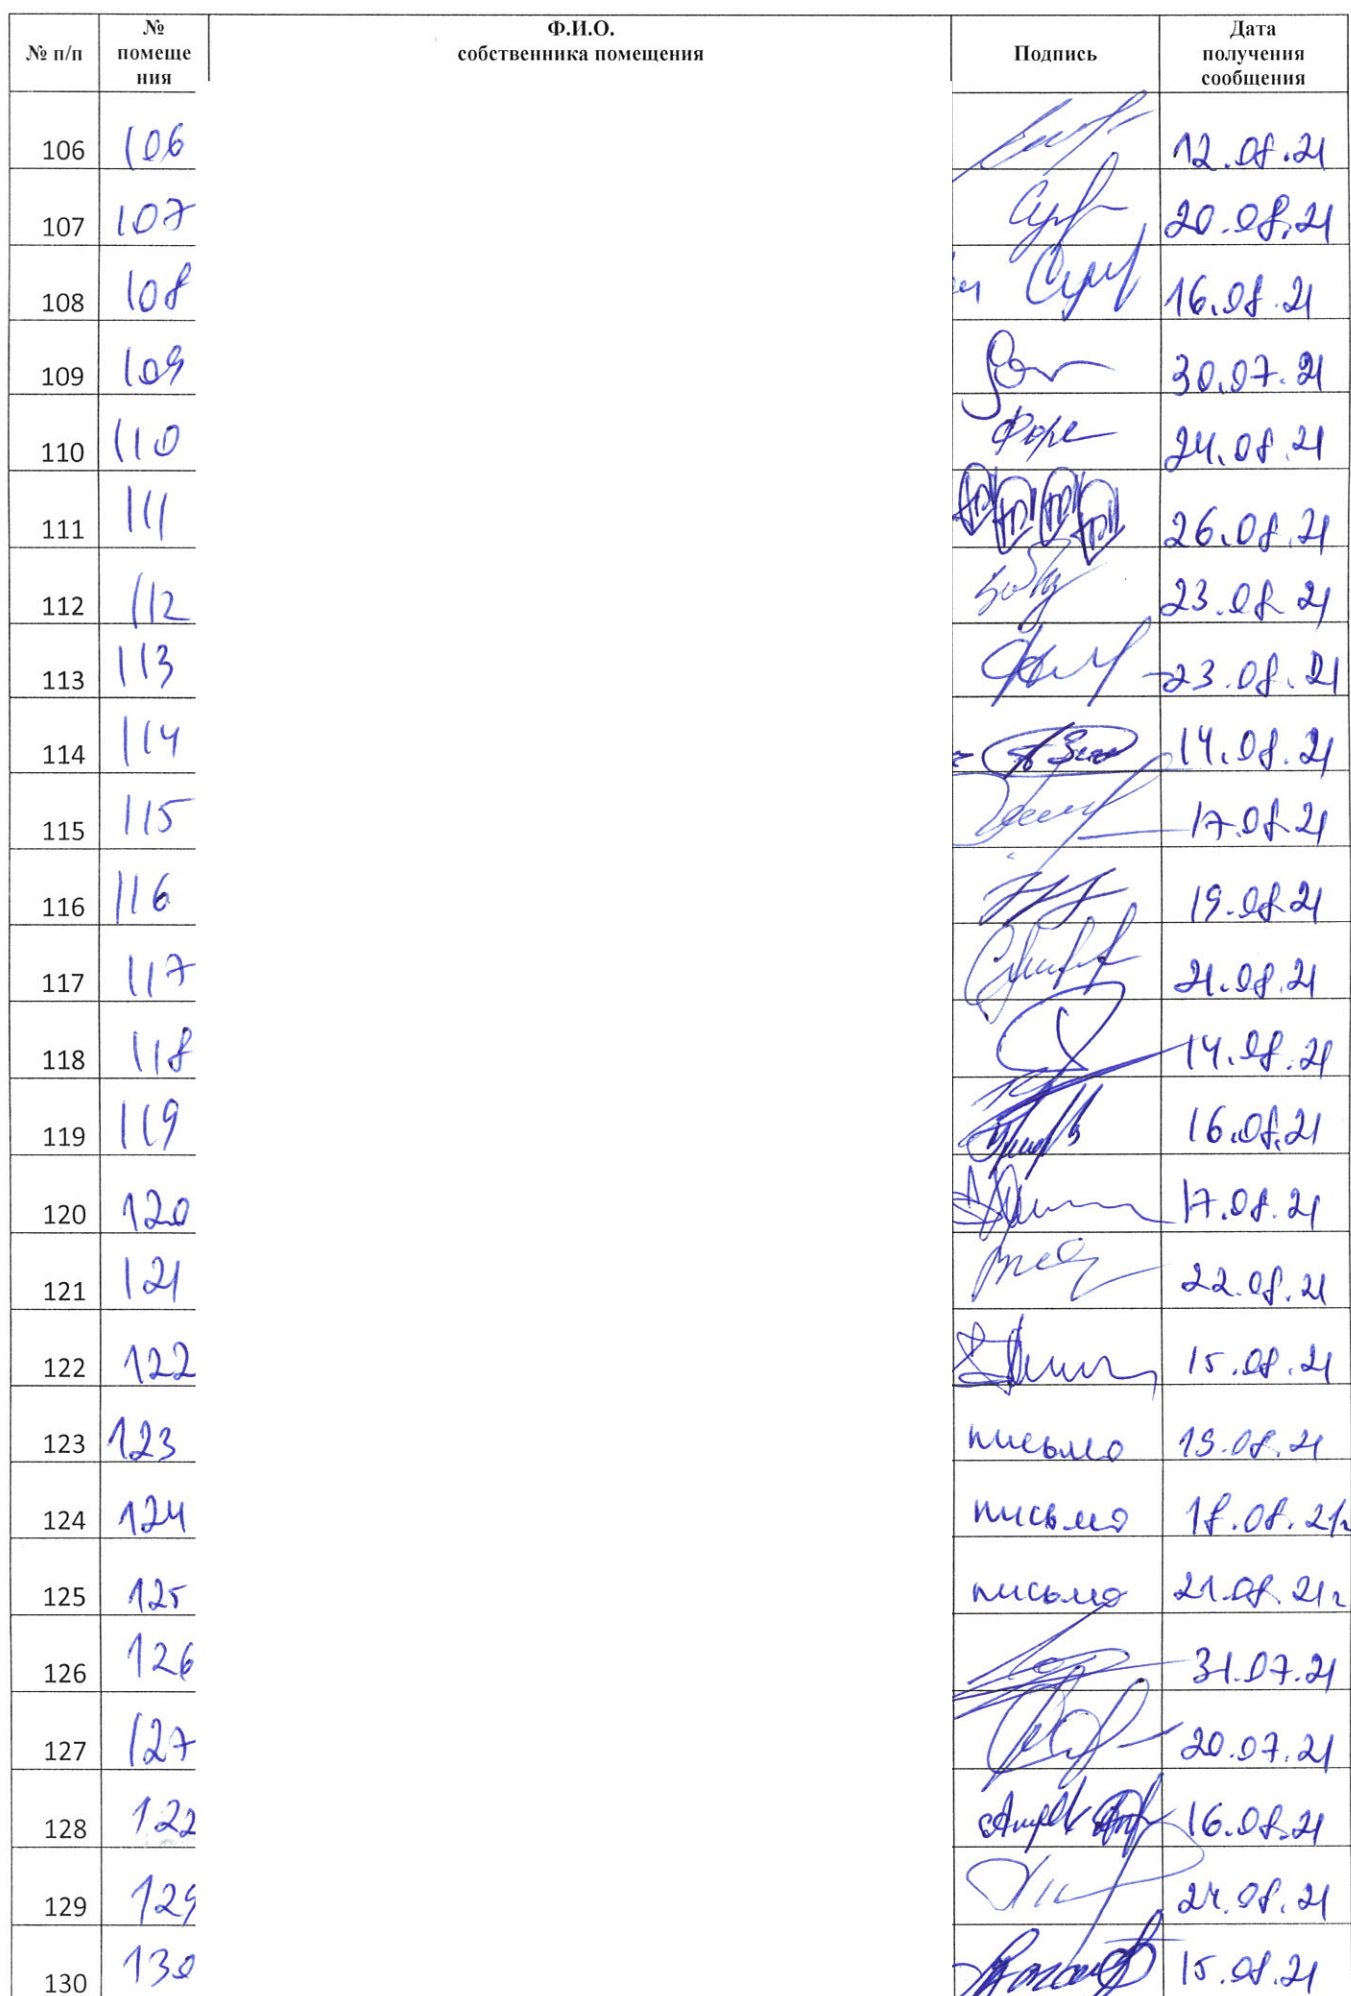 № п/п № помеще ния Ф.И.О. собственника помещения Подпись Дата получения сообщения
106 106 12.08.21
107 107 20.08.21
108 108 16.08.21
109 109 30.07.21
110 110 24.08.21
111 111 26.08.21
112 112 23.08.21
113 113 23.08.21
114 114 14.08.21
115 115 17.08.21
116 116 19.08.21
117 117 21.08.21
118 118 14.08.21
119 119 16.08.21
120 120 17.08.21
121 121 22.08.21
122 122 15.08.21
123 123 письмо 19.08.21
124 124 письмо 18.08.21г
125 125 письмо 21.08.21г
126 126 31.07.21
127 127 20.07.21
128 122 16.08.21
129 129 24.08.21
130 130 15.08.21